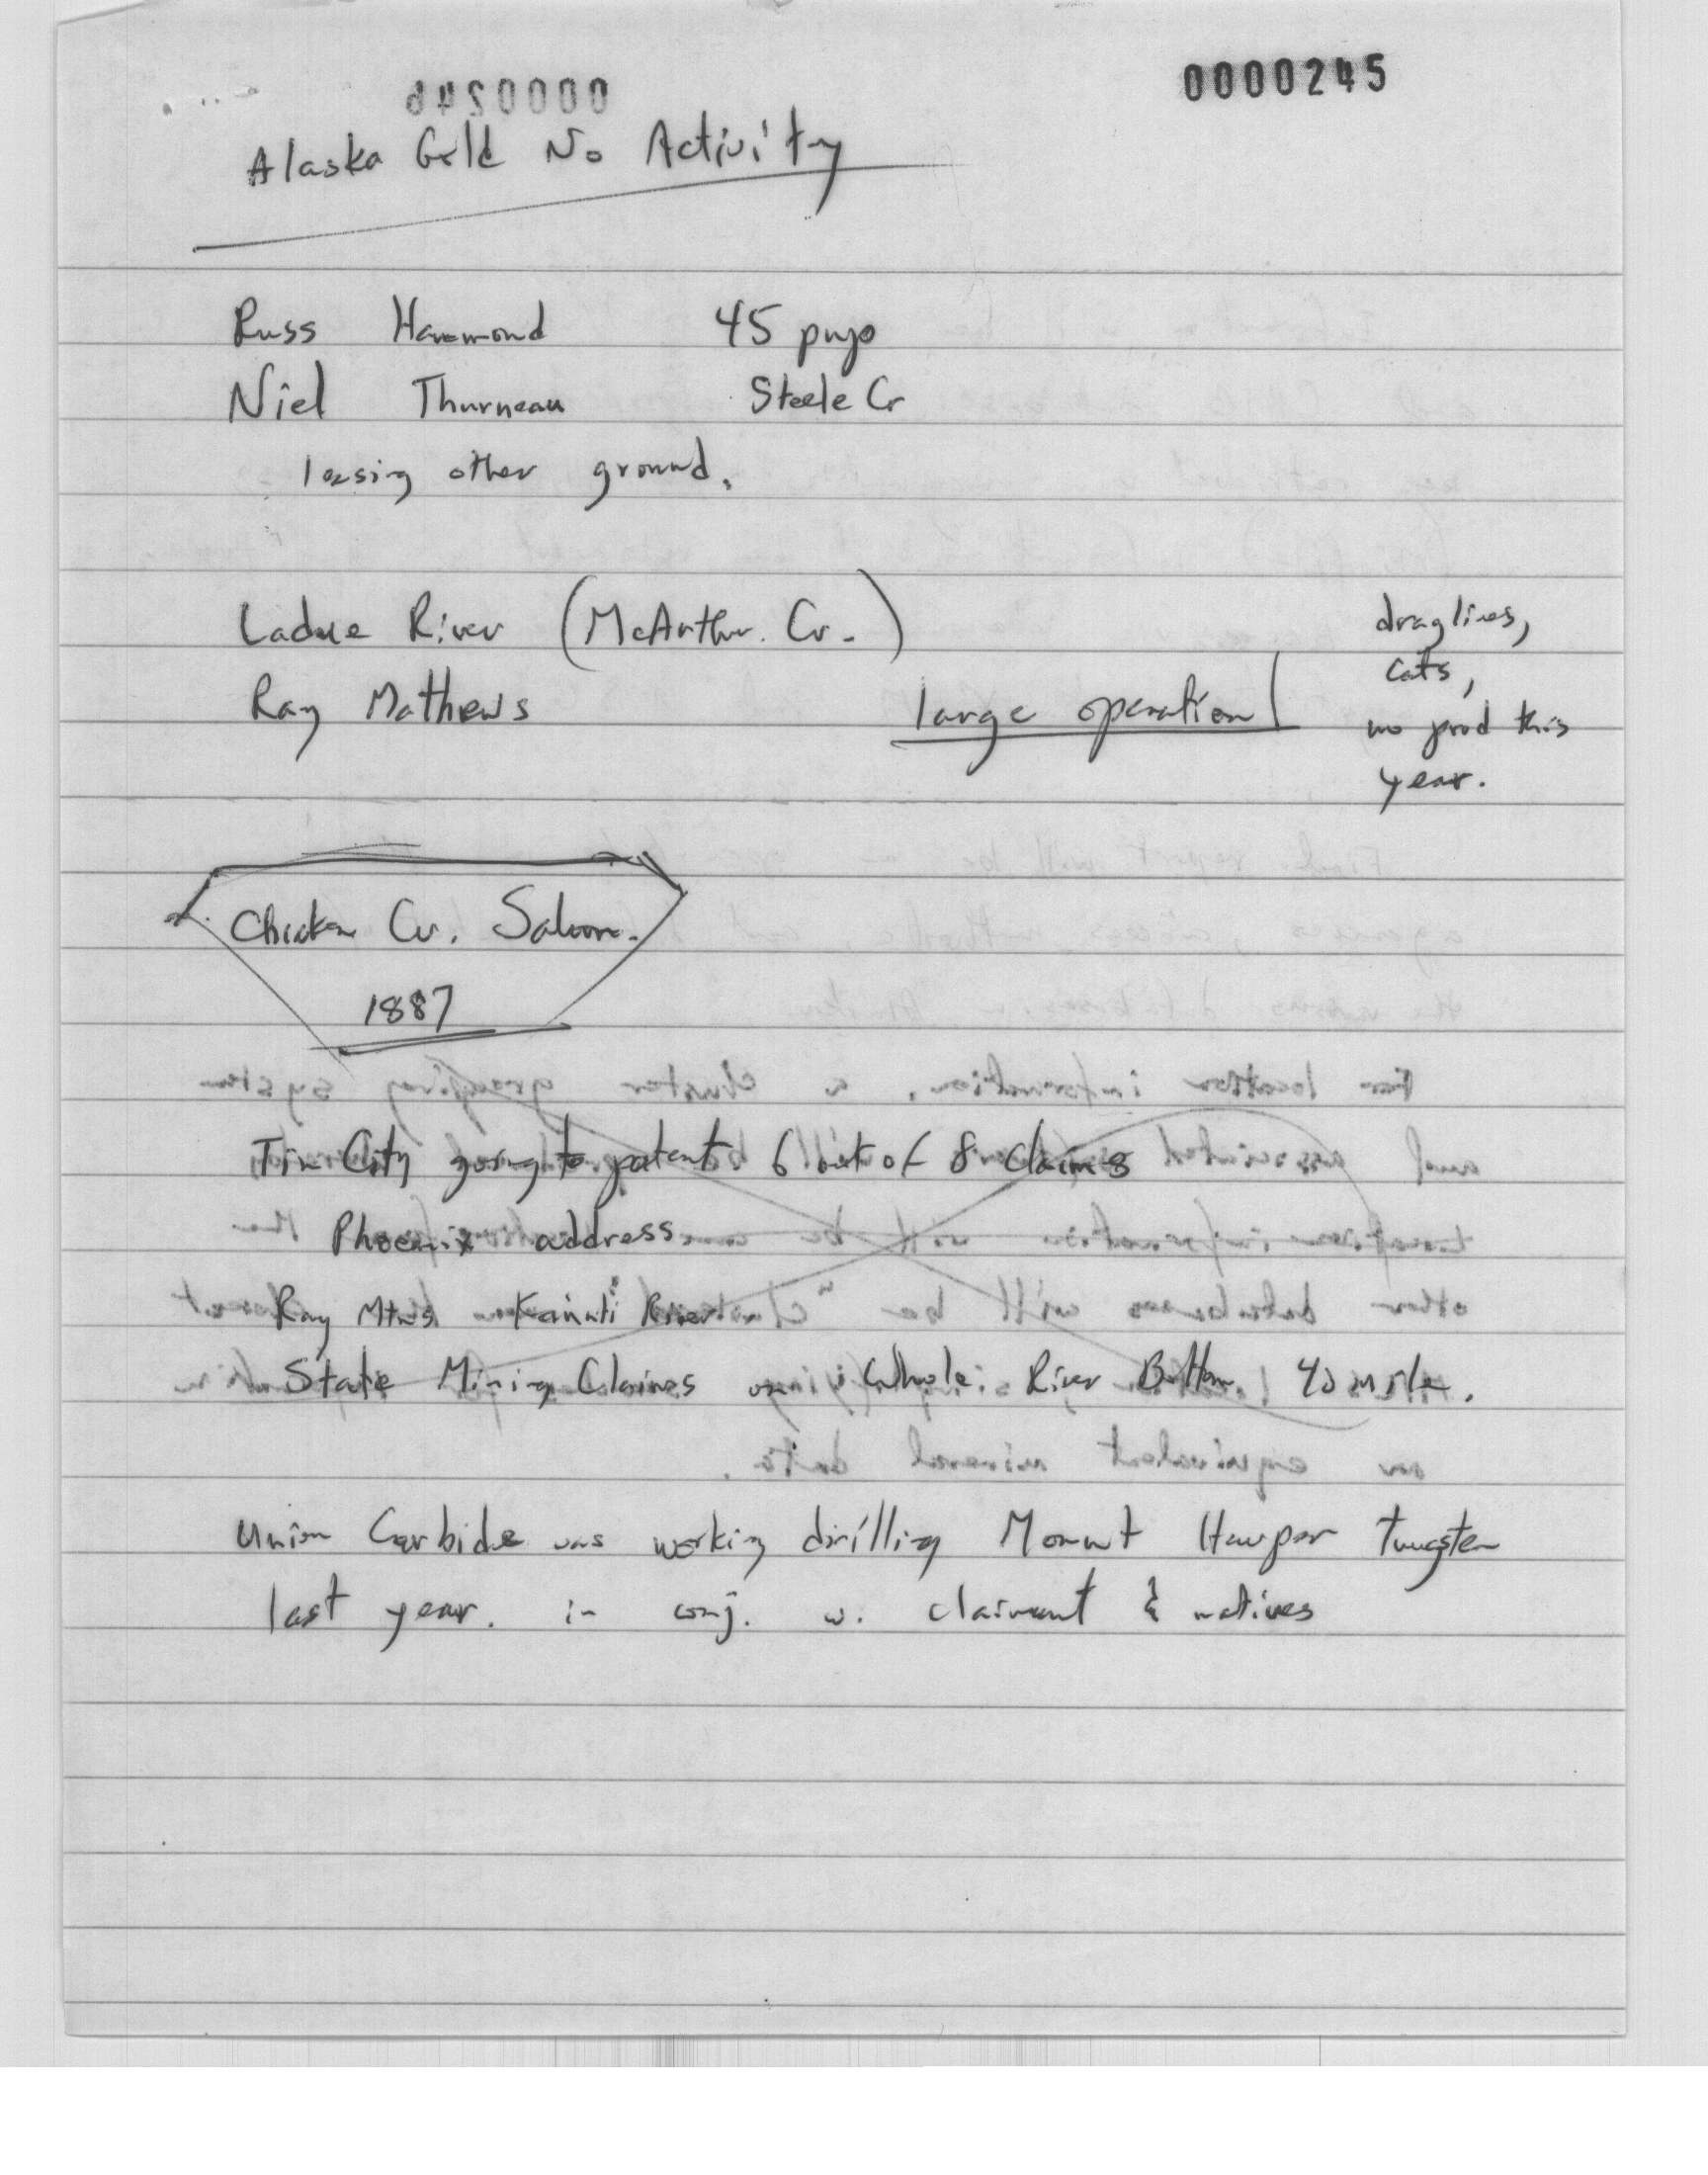 0000245
Alaska Gold No Activity
Russ Hammond 45 pup
Niel Thurneau Steele Cr
leasing other ground.
Ladue River (McArthur Cr.)
Ray Mathews large operation
draglines,
cats,
no prod this
year.
Chicken Cr. Saloon.
1887
Tin City going to patent 6 out of 8 claims
Phoenix address
Ray Mtns Kanuti River
State Mining Claims on Whole River Bottom 40 mile.
Union Carbide was working drilling Mount Harper tungsten
last year. in conj. w. claimant & natives